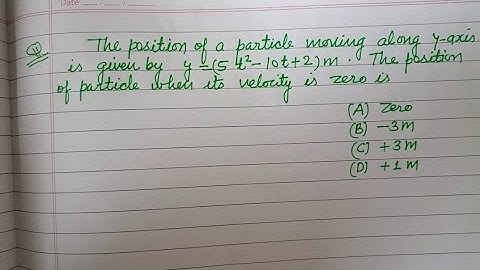 Date
Q The position of a particle moving along y-axis
is given by y = (5t²-10t+2)m. The position
of particle when its velocity is zero is
(A) zero
(B) -3m
(C) +3m
(D) +1m